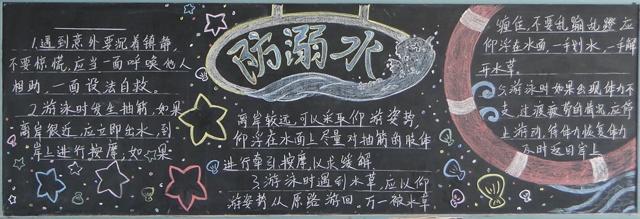 防溺水
1.遇到意外要沉着镇静,
不要惊慌,应当一面呼唤他人
相助,一面设法自救。
2.游泳时发生抽筋,如果
离岸很近,应立即出水,到
岸上进行按摩,如果
离岸较远,可以采取仰游姿势,
仰浮在水面上尽量对抽筋的肢体
进行牵引按摩,以求缓解
3.游泳时遇到水草,应以仰
游姿势从原路游回,万一被水草
缠住,不要乱蹦乱蹬,应
仰浮在水面,一手划水,一手解
开水草,
5.游泳时如果出现体力不
支,过度疲劳的情况,应停
上游动,待体力恢复
及时返回岸上